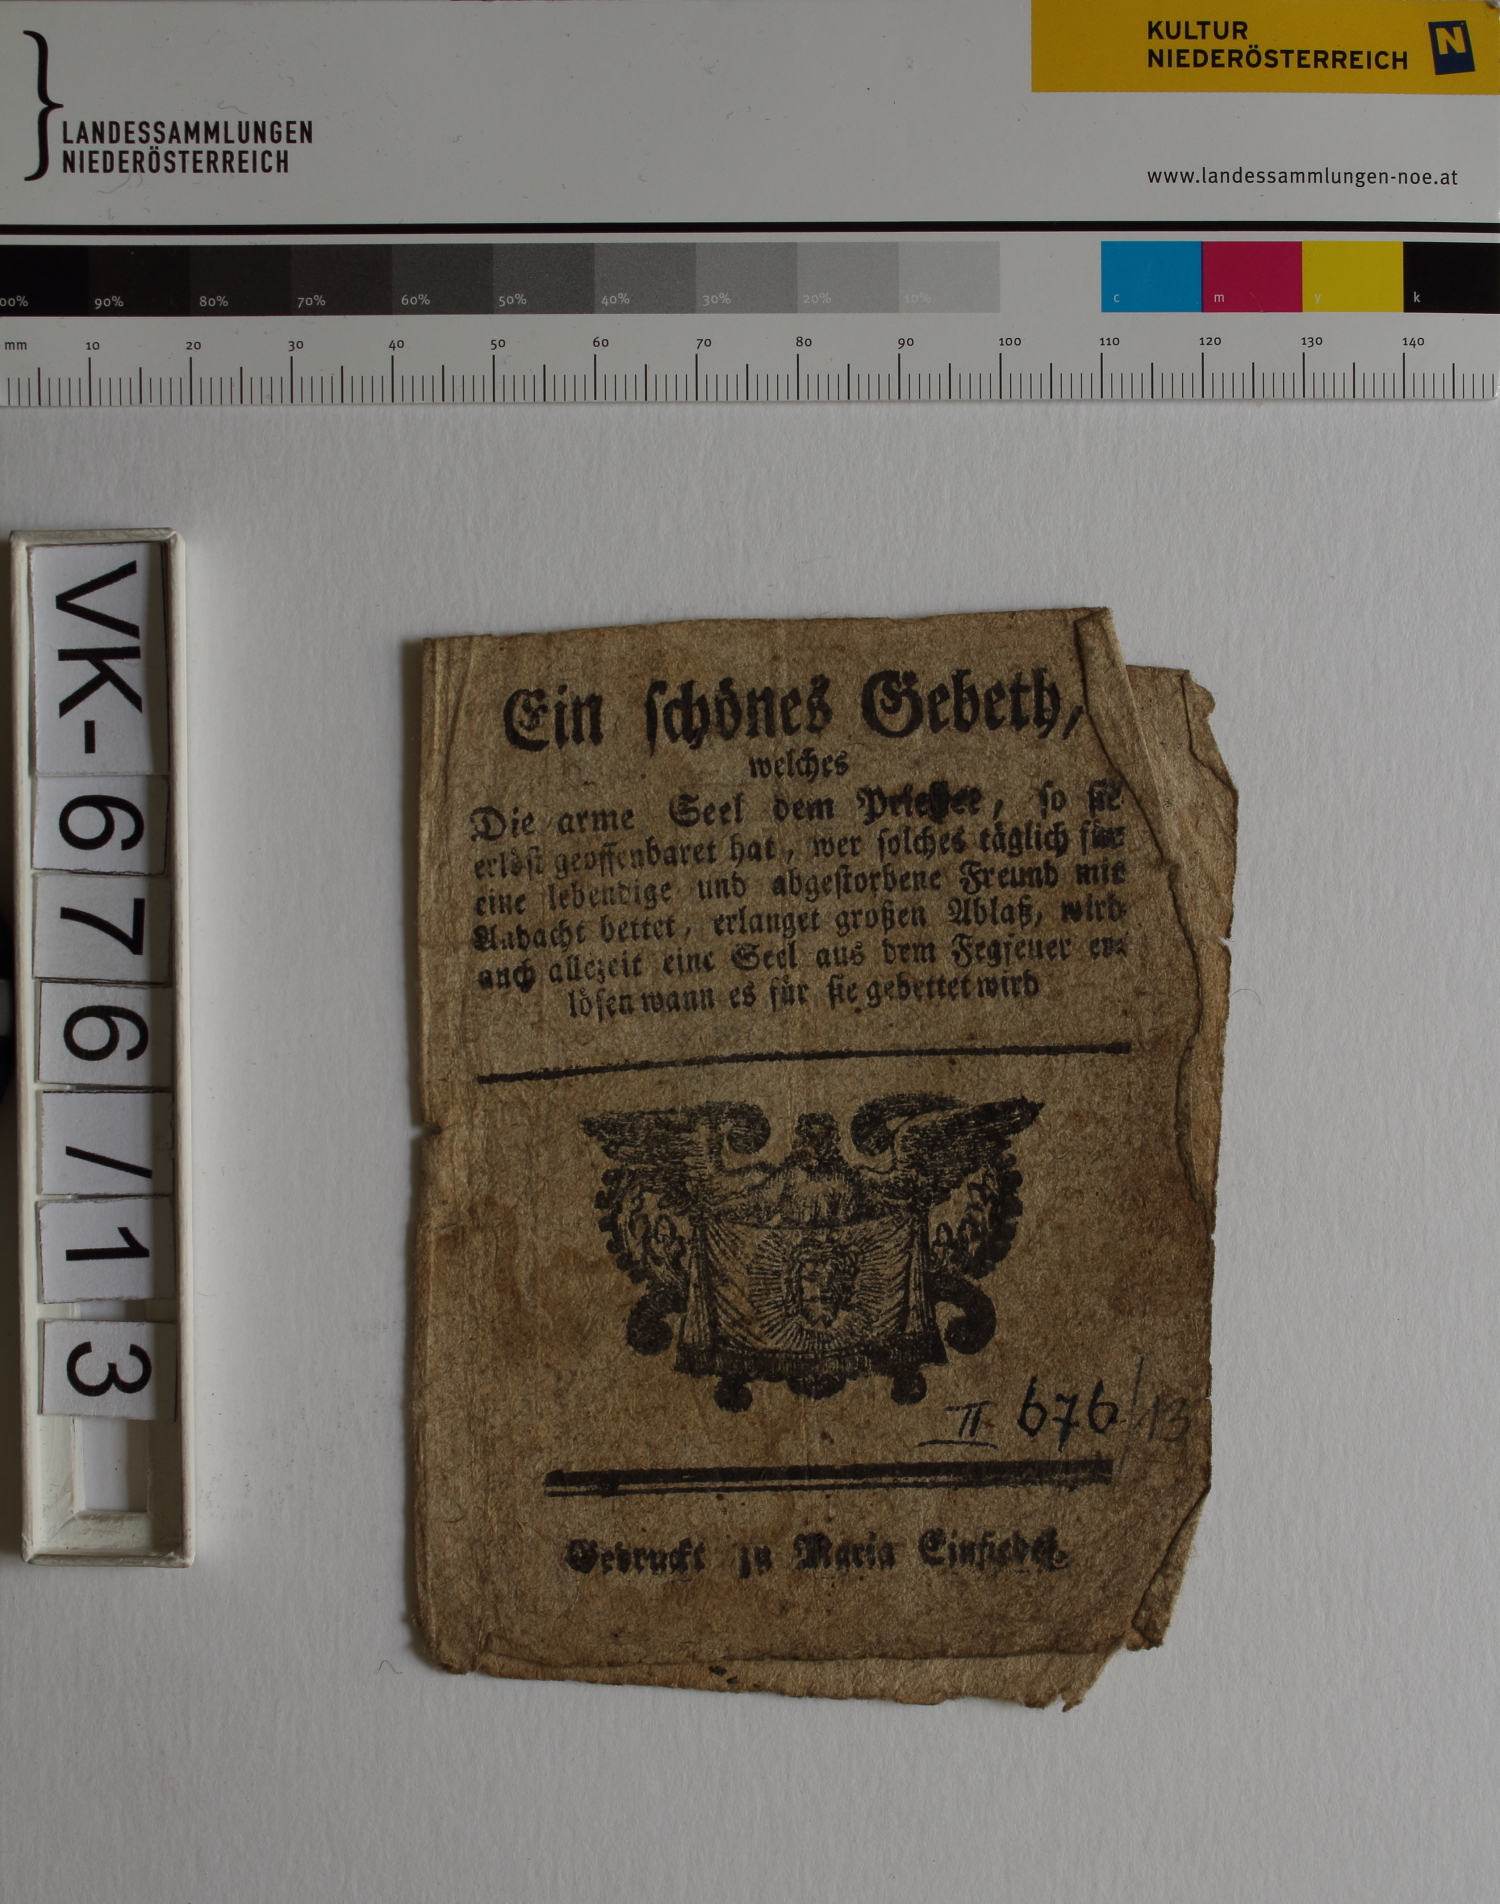 KULTUR
NIEDERÖSTERREICH
N
LANDESSAMMLUNGEN
NIEDERÖSTERREICH
www.landessammlungen-noe.at
00% 90% 80% 70% 60% 50% 40% 30% 20% 10% c m y k
mm 10 20 30 40 50 60 70 80 90 100 110 120 130 140
VK-676/13
Ein ſchönes Gebeth,
welches
Die arme Seel dem Prieſter, ſo ſie
erlöſt geoffenbaret hat, wer ſolches täglich für
eine lebendige und abgeſtorbene Freund mit
Andacht bettet, erlanget großen Ablaß, wird
auch allezeit eine Seel aus dem Fegfeuer er⸗
löſen wann es für ſie gebettet wird
II 676/13
Gedruckt zu Maria Einſiedel.